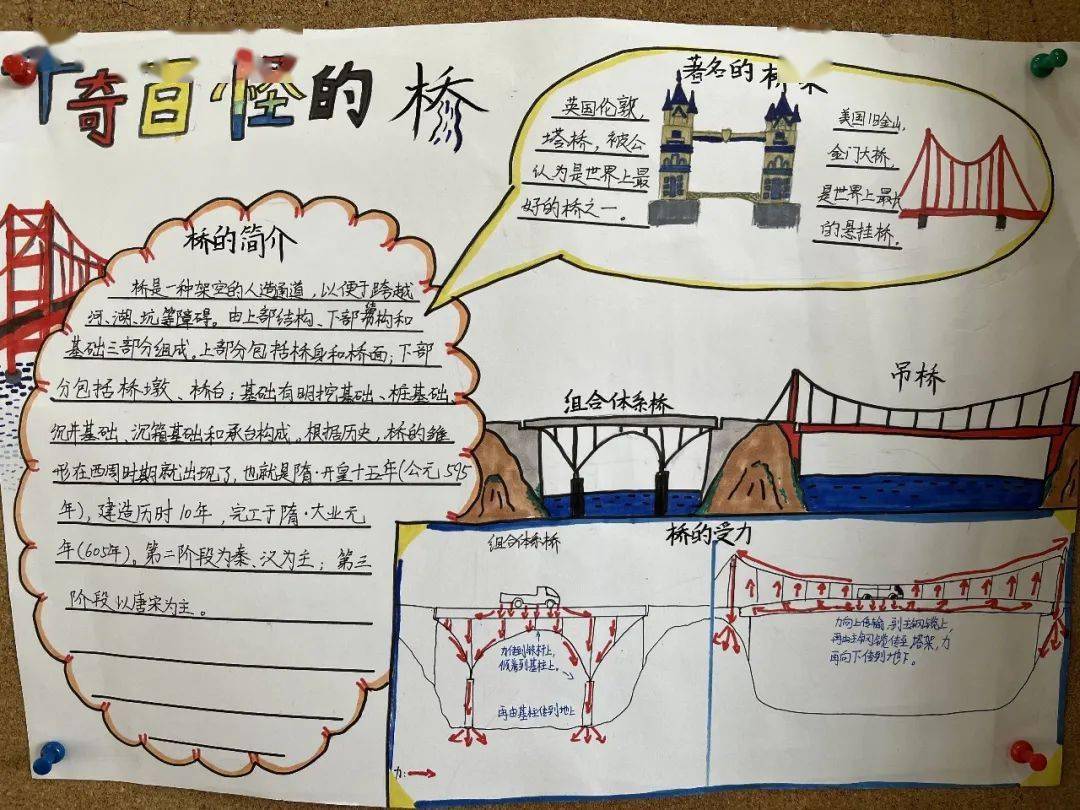 奇百怪的桥
著名的桥
英国伦敦,
塔桥，被公
认为是世界上最
好的桥之一。
美国旧金山,
金门大桥,
是世界上最长
的悬挂桥。
桥的简介
桥是一种架空的人造通道，以便于跨越
河、湖、坑等障碍。由上部结构、下部结构和
基础三部分组成。上部分包括桥身和桥面；下部
分包括桥墩、桥台；基础有明挖基础、桩基础、
沉井基础、沉箱基础和承台构成。根据历史，桥的雏
形在西周时期就出现了，也就是隋·开皇十五年(公元595
年)，建造历时10年，完工于隋·大业元
年(605年)。第二阶段为秦、汉为主；第三
阶段以唐宋为主。
组合体系桥
吊桥
桥的受力
组合体系桥
力传到铁杆上,
倾着到基柱上。
再由基柱传到地上
力向上传输，到主钢镜上,
再由主钢镜传至塔架，力
再向下传到地下。
力: